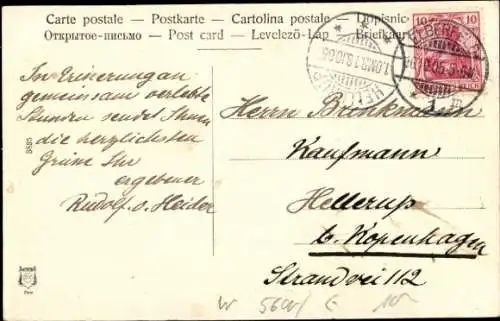 Carte postale – Postkarte – Cartolina postale – Dopisnic
Открытое-письмо – Post card – Levelező-Lap – Briefkaar
10 10
ELBERFE
HELLERUP
In Erinnerung an
gemeinsam verlebte
Stunden sendet Ihnen
die herzlichsten
Grüsse Ihr
ergebener
Rudolf v. Heider
Herrn Brinkmann
Kaufmann
Hellerup
b. Kopenhagen
Strandvei 112